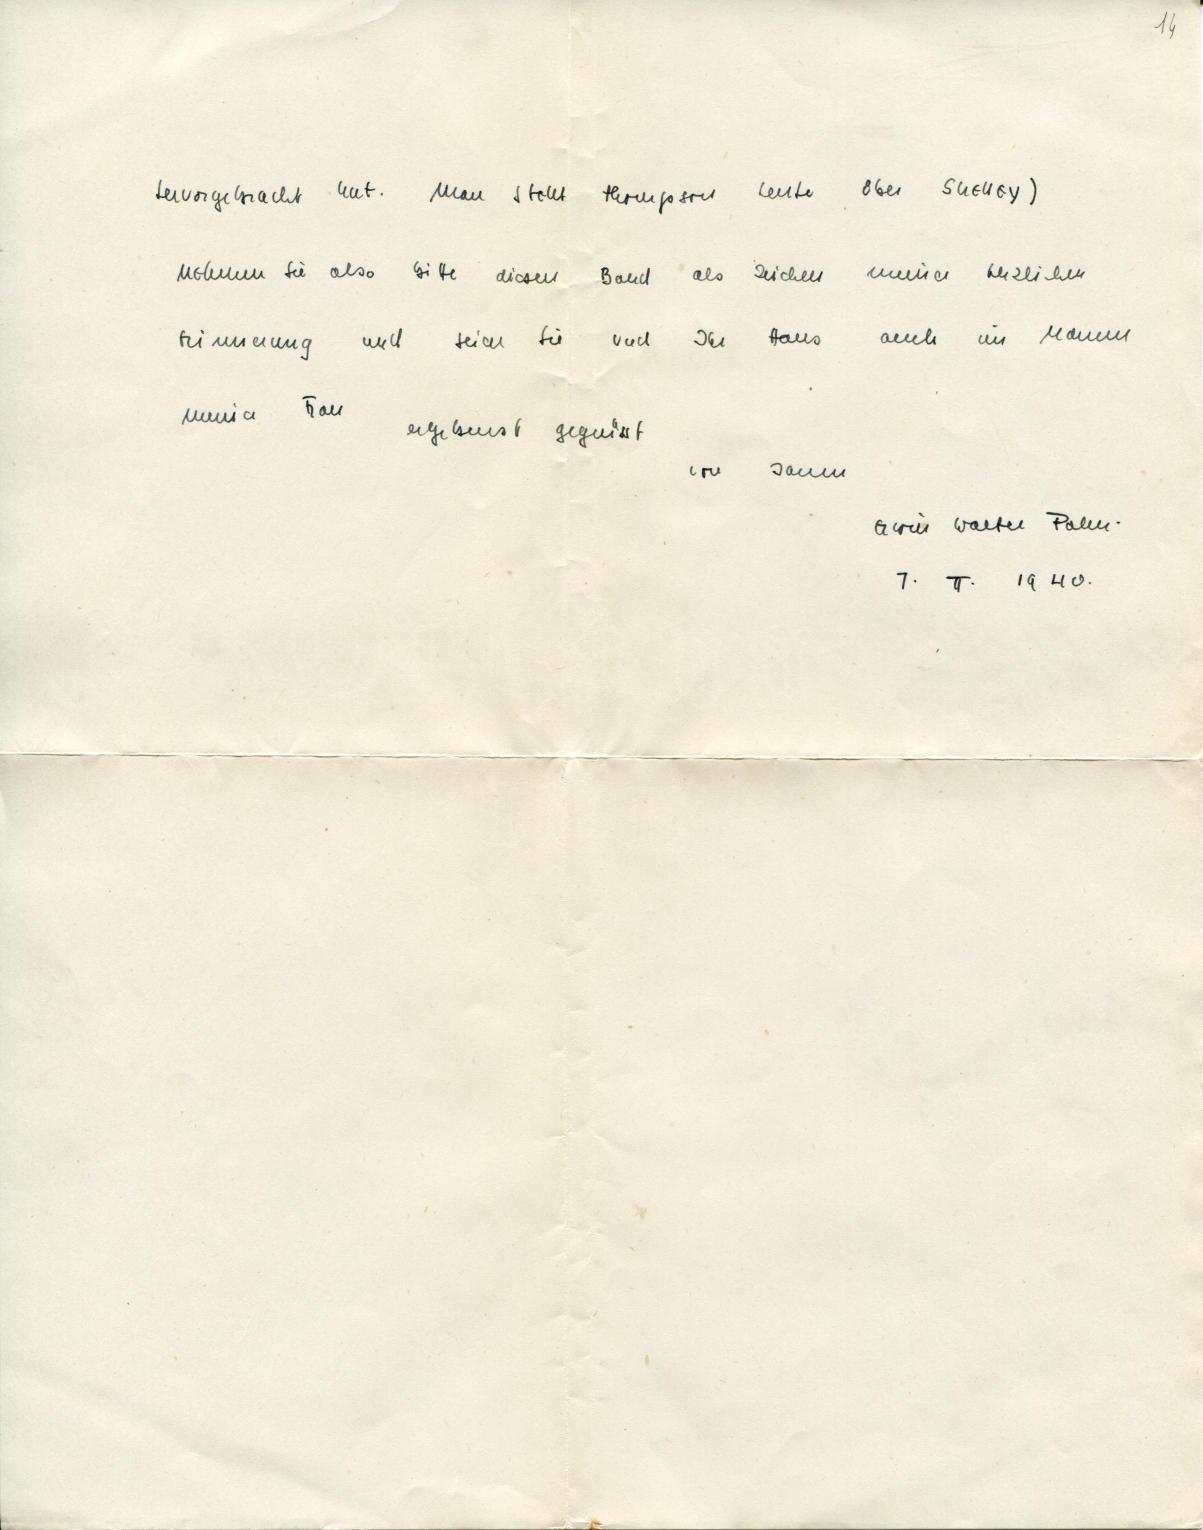 14
hervorgebracht hat. Man stellt Thompson heute über Shelley)
Nehmen Sie also bitte diesen Band als Zeichen meiner herzlichen
Erinnerung und seien Sie und Ihr Haus auch im Namen
meiner Frau
ergebenst gegrüsst
von Ihrem
Erwin Walter Palm.
7. II. 1940.